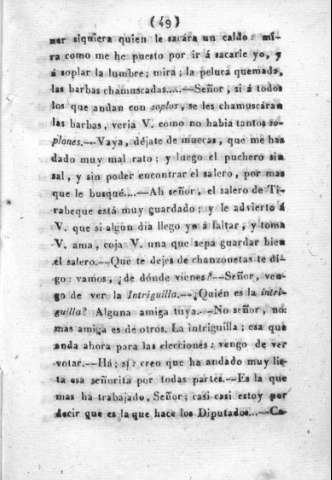 (49)
ner siquiera quien le sacára un caldo: mí-
ra como me he puesto por ir á sacarle yo, y
á soplar la lumbre; mira; la peluca quemada,
las barbas chamuscadas....—Señor, si á todos
los que andan con soplos, se les chamuscáran
las barbas, veria V. como no habia tantos so-
plones.—Vaya, déjate de muecas, que me has
dado muy mal rato; y luego el puchero sin
sal, y sin poder encontrar el salero, por mas
que le busqué....—Ah señor, el salero de Ti-
rabeque está muy guardado; y le advierto á
V. que si algun dia llego yo á faltar, y toma
V. ama, coja V. una que sepa guardar bien
el salero.—Que te dejes de chanzonetas te di-
go: vamos, ¿de dónde vienes?—Señor, ven-
go de ver la Intriguilla.—¿Quién es la intri-
guilla? Alguna amiga tuya.—No señor, no:
mas amiga es de otros. La intriguilla; esa que
anda ahora para las elecciones: vengo de ver
votar.—Há; sí: creo que ha andado muy lis-
ta esa señorita por todas partes.—Es la que
mas ha trabajado, Señor; casi casi estoy por
decir que es la que hace los Diputados...—Ca-